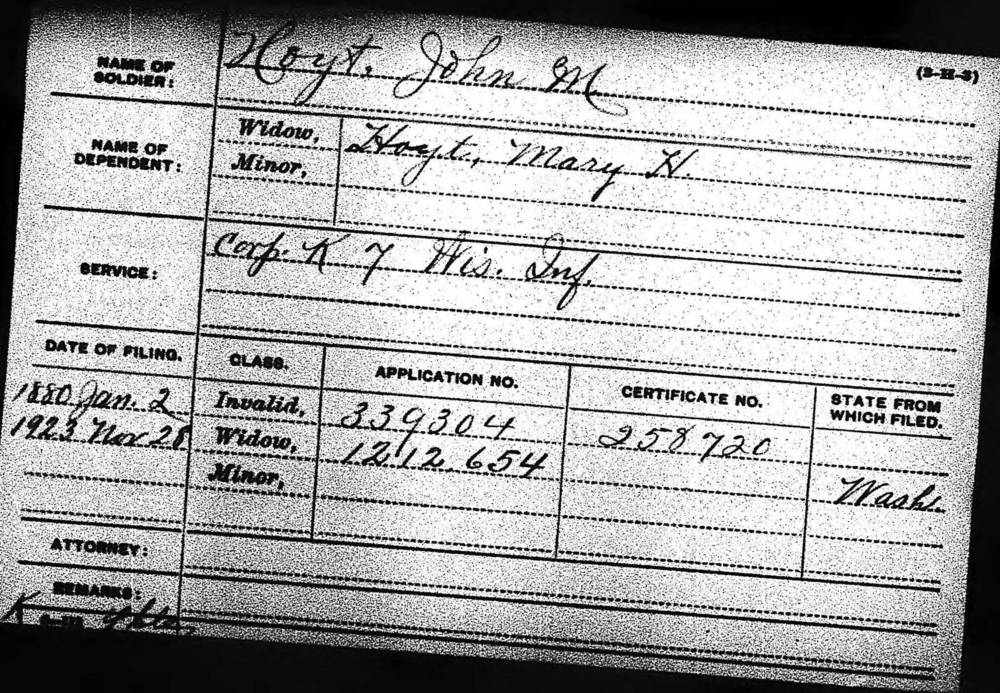 NAME OF SOLDIER: Hoyt, John M (3-H-3)
NAME OF DEPENDENT: Widow, Hoyt, Mary H.
Minor,
SERVICE: Corp. K 7 Wis. Inf.
DATE OF FILING. CLASS. APPLICATION NO. CERTIFICATE NO. STATE FROM WHICH FILED.
1880 Jan. 2 Invalid, 339304 258720
1923 Nov 28 Widow, 1212 654 Wash.
Minor,
ATTORNEY:
REMARKS: